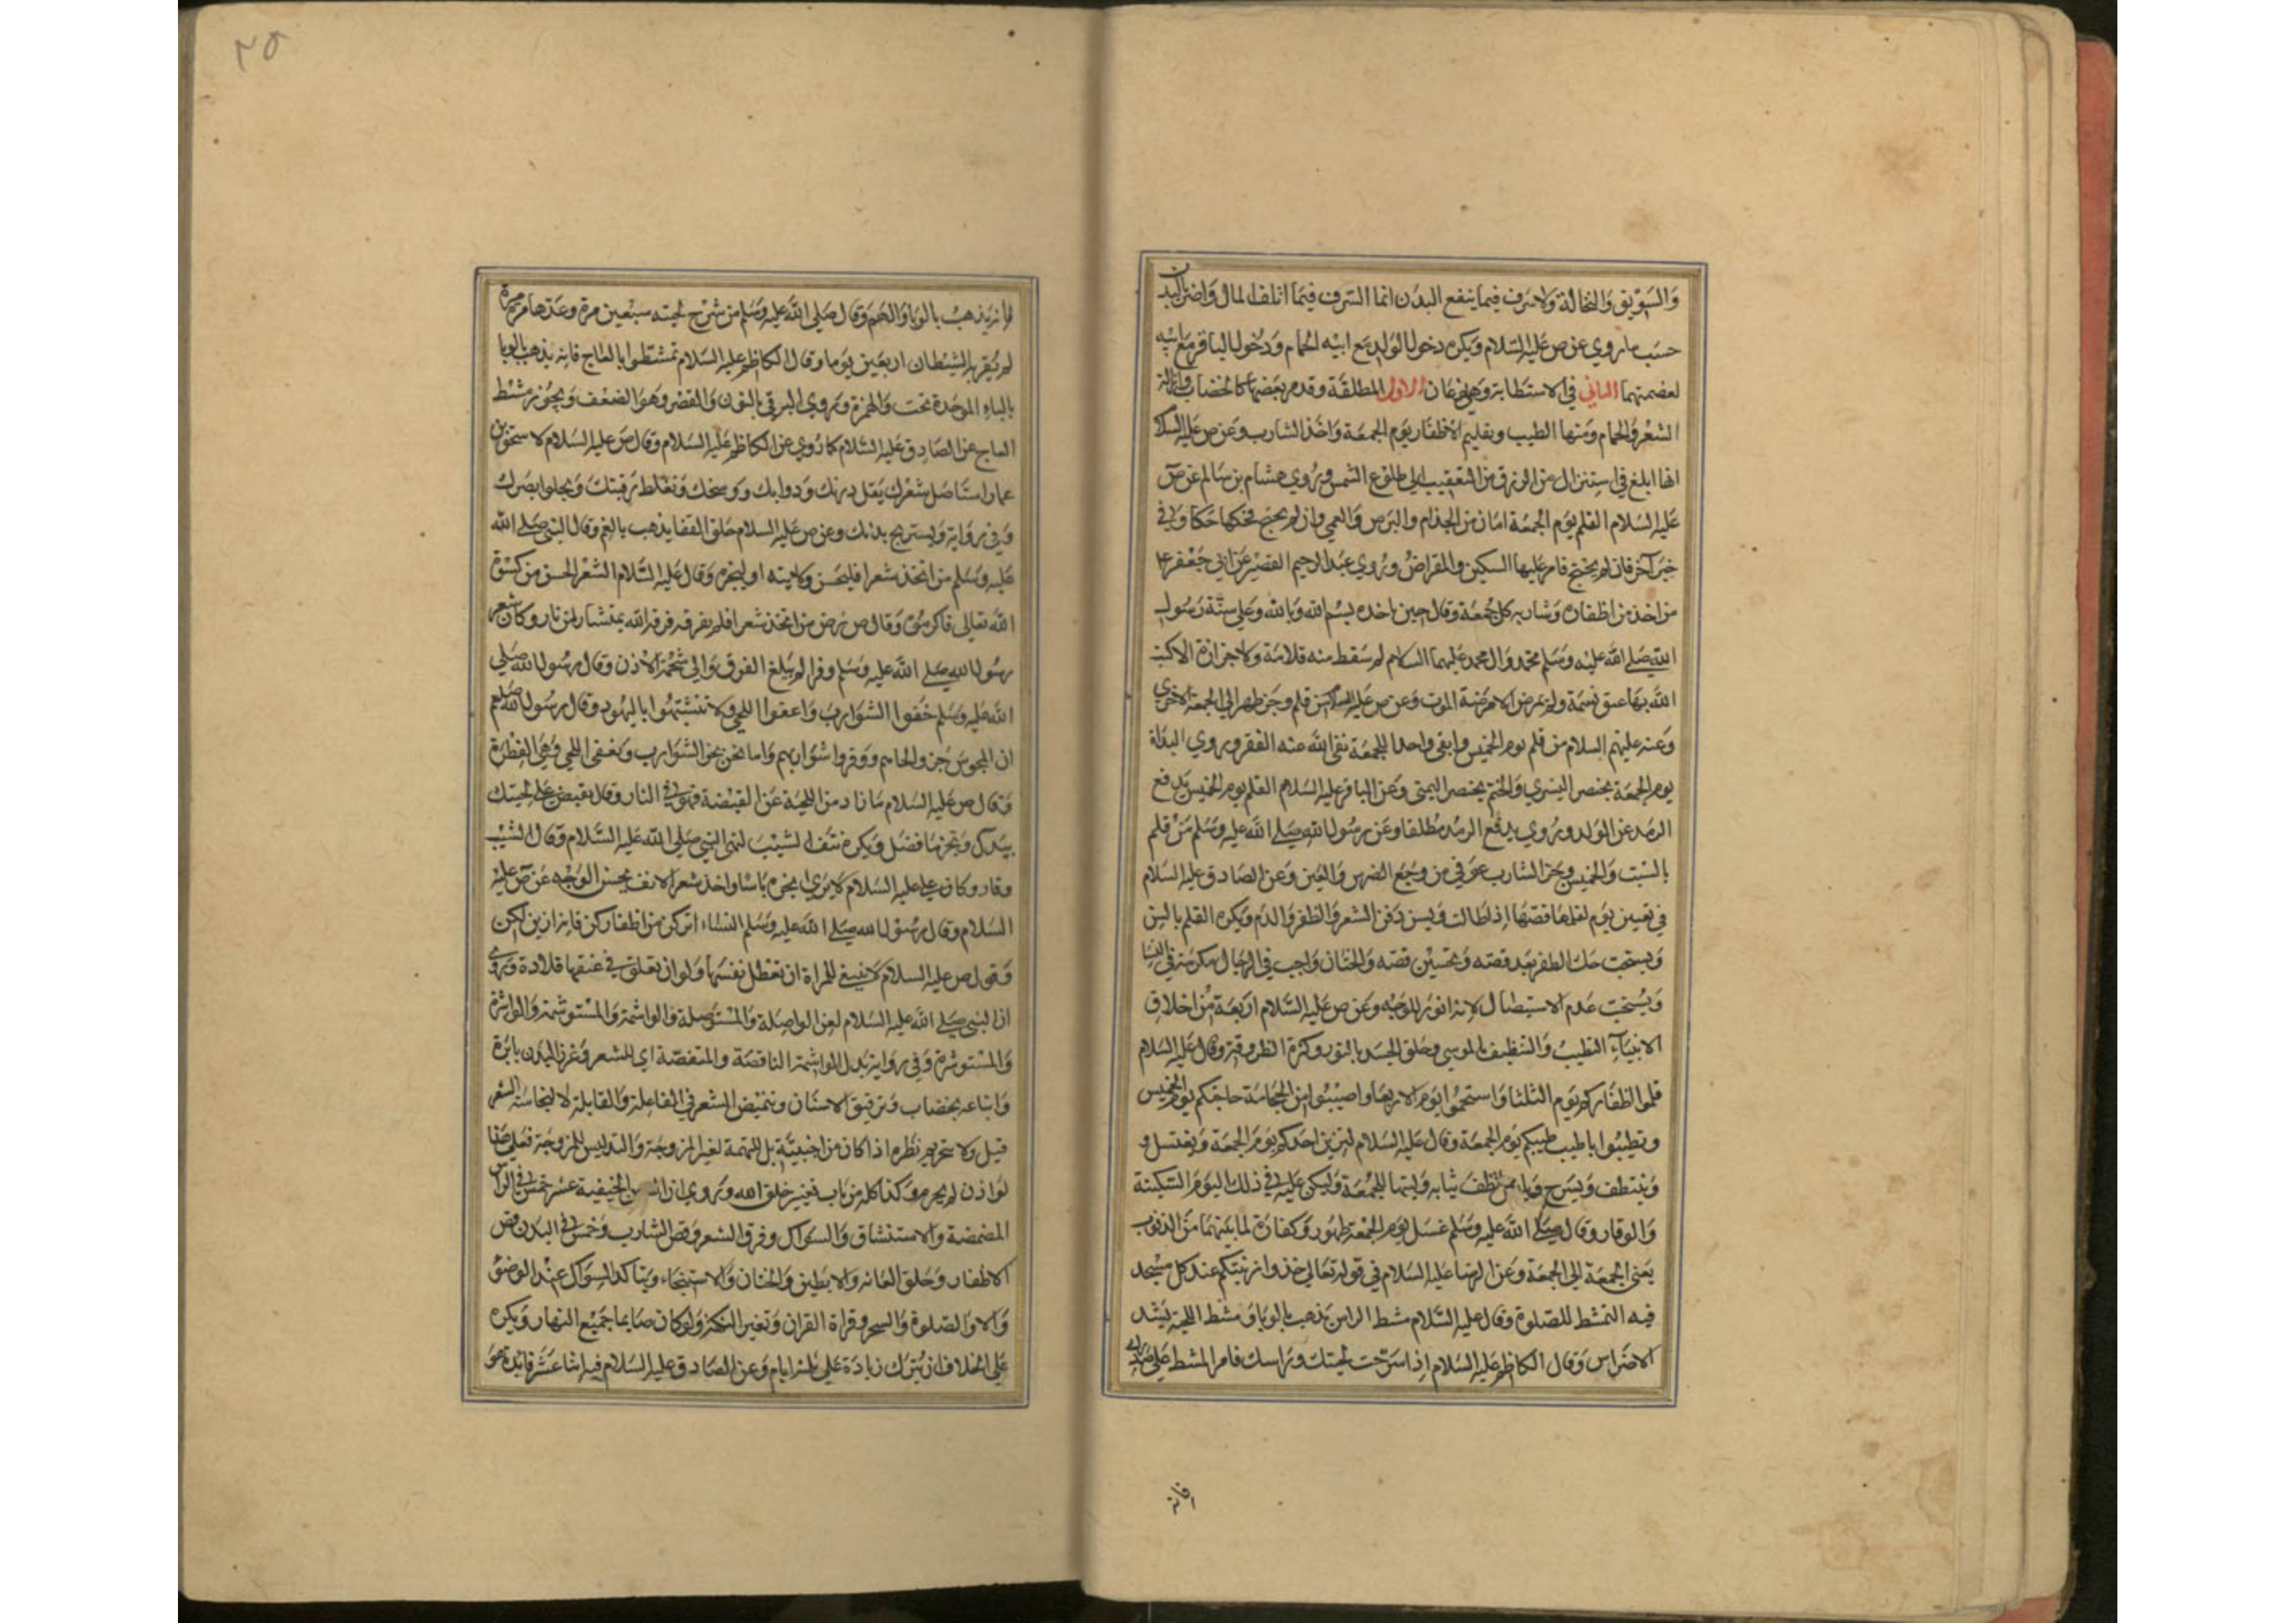 والسويق والنخالة ولا سرف فيما ينفع البدن انما السرف فيما اتلف المال واضر بالبدن
حسب ما روي عن ص عليه السلام ويكره دخول الولد مع ابيه الحمام ودخول الباقر مع ابيه
لعصمتهما الثاني في الاستطابة وهي نوعان الاول المطلقة وقدم بعضها كالخضاب وازالة
الشعر والحمام ومنها الطيب وتقليم الاظفار يوم الجمعة واخذ الشارب وعن ص عليه السلام
انها ابلغ في استنزال من الرزق من التعقيب الى طلوع الشمس وروي هشام بن سالم عن ص
عليه السلام القلم يوم الجمعة امان من الجذام والبرص والعمي وان لم يحتج فحكها حكا وفي
خبر آخر فان لم يحتج فامر عليها السكين والمقراض وروي عبد الرحيم القصير عن ابي جعفر ع
من اخذ من اظفاره وشاربه كل جمعة وقال حين ياخذه بسم الله وبالله وعلي سنة رسول
الله صلى الله عليه وسلم محمد وال محمد عليهما السلام لم سقط منه قلامة ولا جزازة الا كتب
الله بها عتق نسمة ولم يمرض الا مرضة الموت وعن ص عليه السلام من قلم وجز طهر الي الجمعة الاخري
وعنه عليهم السلام من قلم يوم الخميس وابقي واحدا للجمعة نفي الله عنه الفقر وروي البداة
يوم الجمعة بخنصر اليسري والختم بخنصر اليمني وعن الباقر عليه السلام القلم يوم الخميس يدفع
الرمد عن الولد وروي يدفع الرمد مطلقا وعن رسول الله صلى الله عليه وسلم من قلم
بالسبت والخميس وجز الشارب عوفي من وجع الضرس والعين وعن الصادق عليه السلام
في تعيين يوم لقلمها قصها اذا طالت ويسن دفن الشعر والظفر والدم ويكره القلم بالسن
ويستحب حك الظفر بعد قصه وتحسين قصه والختان واجب في الرجال مكرمة في النسا
ويستحب عدم الاستيصال لانه انور للوجه وعن ص عليه السلام اربعة من اخلاق
الانبياء التطيب والتنظيف بالموسي وحلق الجسد بالنور وكثرة الطروقة وقال عليه السلام
قلموا اظفاركم يوم الثلثا واستحموا يوم الاربعا واصيبوا من الحجامة حاجتكم يوم الخميس
وتطيبوا باطيب طيبكم يوم الجمعة وقال عليه السلام ليتزين احدكم يوم الجمعة ويغتسل و
ويتطف ويسرح تنظف ثيابه وليتهيا للجمعة وليكن عليه في ذلك اليوم السكينة
والوقار وقال صلى الله عليه وسلم غسل يوم الجمعة طهور وكفارة لما بينهما من الذنوب
يعني الجمعة الي الجمعة وعن الرضا عليه السلام في قوله تعالى خذوا زينتكم عند كل مسجد
فيه التمشط للصلوة وقال عليه السلام مشط الراس يذهب بالوبا ومشط اللحية يشد
الاضراس وقال الكاظم عليه السلام اذا سرحت لحيتك وراسك فامر المشط علي صدرك
فانه
٢٥
فانه يذهب بالوبا والهم وقال صلى الله عليه وسلم من سرح لحيته سبعين مرة وعدها مرة مرة
لم يقربه الشيطان اربعين يوما وقال الكاظم عليه السلام تمشطوا بالعاج فانه يذهب بالوبا
بالباء الموحدة تحت والهمزة وروي البرقي بالنون والقصر وهو الضعف ويجوز مشط
العاج عن الصادق عليه السلام كما روي عن الكاظم عليه السلام وقال ص عليه السلام لاسحق بن
عمار استاصل شعرك يقل درنك ودوابك ووسخك وتغلظ رقبتك ويجلوا بصرك
وفي رواية ويستريح بدنك وعن ص عليه السلام حلق القفا يذهب بالغم وقال النبي صلى الله
عليه وسلم من اتخذ شعرا فليحسن ولايته او ليجزه وقال عليه السلام الشعر الحسن من كسوة
الله تعالى فاكرموه وقال ص من اتخذ شعرا فلم يفرقه فرقه الله بمنشار من نار وكان شعر
رسول الله صلى الله عليه وسلم وفرا لم يبلغ الفرق والى شحمة الاذن وقال رسول الله صلى
الله عليه وسلم حفوا الشوارب واعفوا اللحي ولا تتشبهوا باليهود وقال رسول الله صلعم
ان المجوس جزوا لحاهم ووفروا شواربهم واما نحن نجز الشوارب ونعفي اللحي وهي الفطرة
وقال ص عليه السلام ما زاد من اللحية عن القبضة فهو في النار وقال تقبض علي لحيتك
بيدك وتجز ما فضل ويكره نتف الشيب لنهي النبي صلى الله عليه السلام وقال الشيب
وقار وكان علي عليه السلام لا يري بجزه باسا واخذ شعر الانف يحسن الوجه عن ص عليه
السلام وقال رسول الله صلى الله عليه وسلم النساء اتركن من اظفاركن فانه ازين لكن
وقول ص عليه السلام لا ينبغي للمراة ان تعطل نفسها ولو ان تعلق في عنقها قلادة وروي
ان النبي صلى الله عليه السلام لعن الواصلة والمستوصلة والواشمة والمستوشمة والواشرة
والمستوشرة وفي رواية بدل الواشمة النامصة والمتنمصة اي للشعر وغرز البدن بابرة
واتباعه بخضاب وترقيق الاسنان وتنميص الشعر في الفاعلة والقابلة لا لنجاسة الشعر
قيل ولا تحريم نظره اذا كان من اجنبية بل للتهمة لغير المزوجة والتدليس للمزوجة فعلي هذا
لو اذن لم يحرم وكذا كله من باب تغيير خلق الله وروي ان الحنيفية عشر خمس في الراس
المضمضة والاستنشاق والسواك وفرق الشعر وقص الشارب وخمس في البدن قص
الاظفار وحلق العانه والابطين والختان والاستنجاء ويتاكد السواك عند الوضوء
والا والصلوة والسحر وقراة القران وتغير النكهة ولو كان صايما جميع النهار ويكره
علي الخلاف ان يترك زيادة علي ثلثة ايام وعن الصادق عليه السلام فيه اثنا عشر فائدة هو